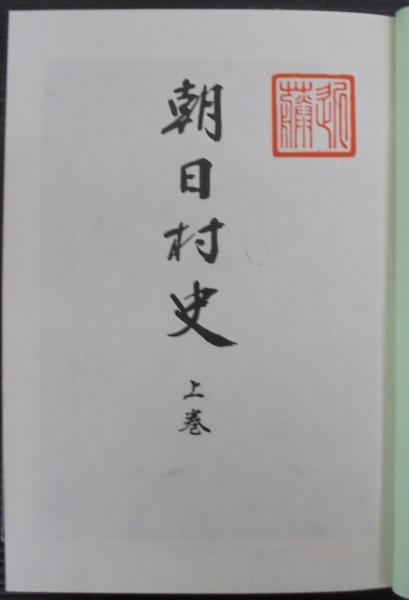 朝日村史
上巻